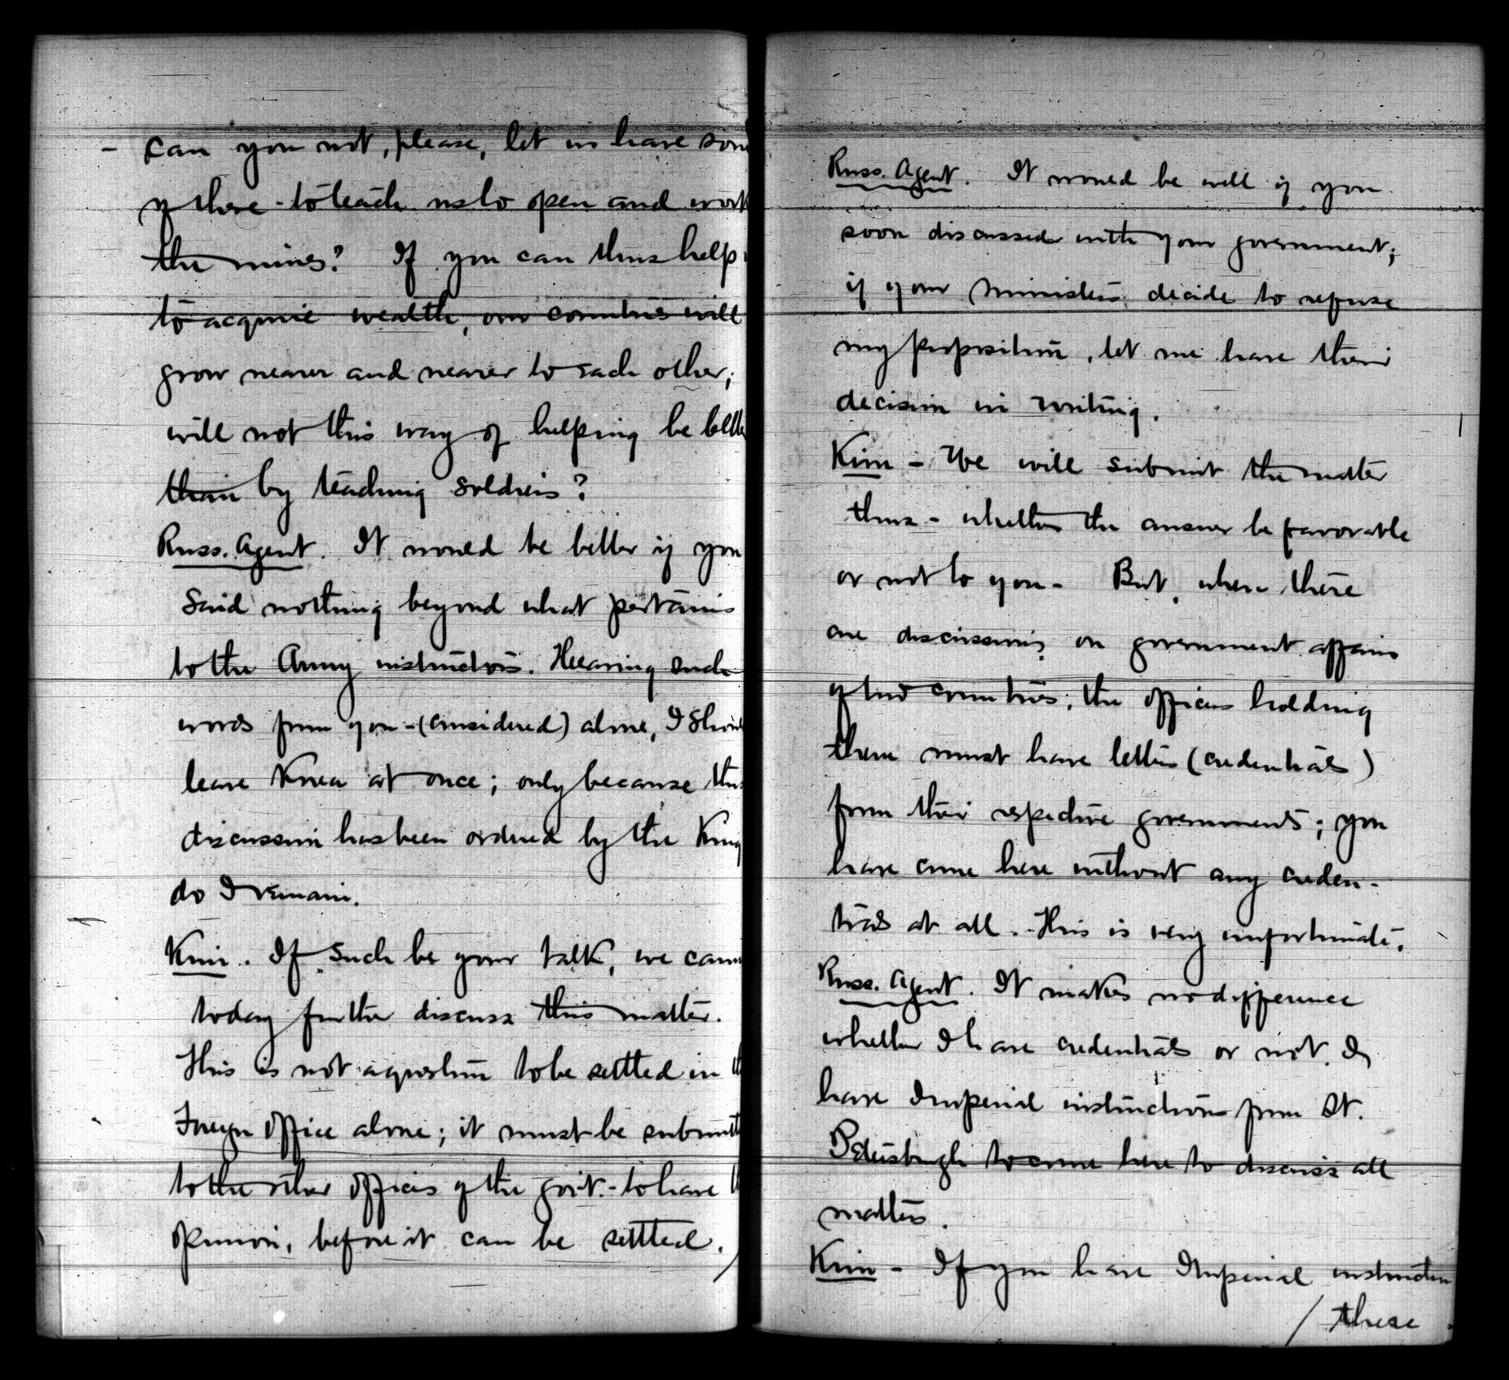 - can you not, please, let us have som
of these - to teach us to open and work
the mines? If you can thus help
to acquire wealth, our countries will
grow nearer and nearer to each other;
will not this way of helping be bette
than by teaching soldiers?
Russ. Agent. It would be better if you
said nothing beyond what pertains
to the Army instructors. Hearing such
words from you - (considered) alone, I shou
leave Korea at once; only because this
discussion has been ordered by the King
do I remain.
Kim. - If such be your talk, we cann
today further discuss this matter.
This is not a question to be settled in th
Foreign Office alone; it must be submitt
to the other offices of the govt. - to have th
opinion, before it can be settled.
Russ. Agent. It would be well if you
soon discussed with your government;
if your Ministers decide to refuse
my proposition, let me have their
decision in writing.
Kim - We will submit the matter
thus - whether the answer be favorable
or not to you - But, when there
are discussions on government affairs
of two countries, the officers holding
them must have letters (credentials)
from their respective governments; you
have come here without any creden-
tials at all. - This is very unfortunate.
Russ. Agent. It makes no difference
whether I have credentials or not. I
have Imperial instructions from St.
Petersburgh to come here to discuss all
matters.
Kim - If you have Imperial instruction
/ these